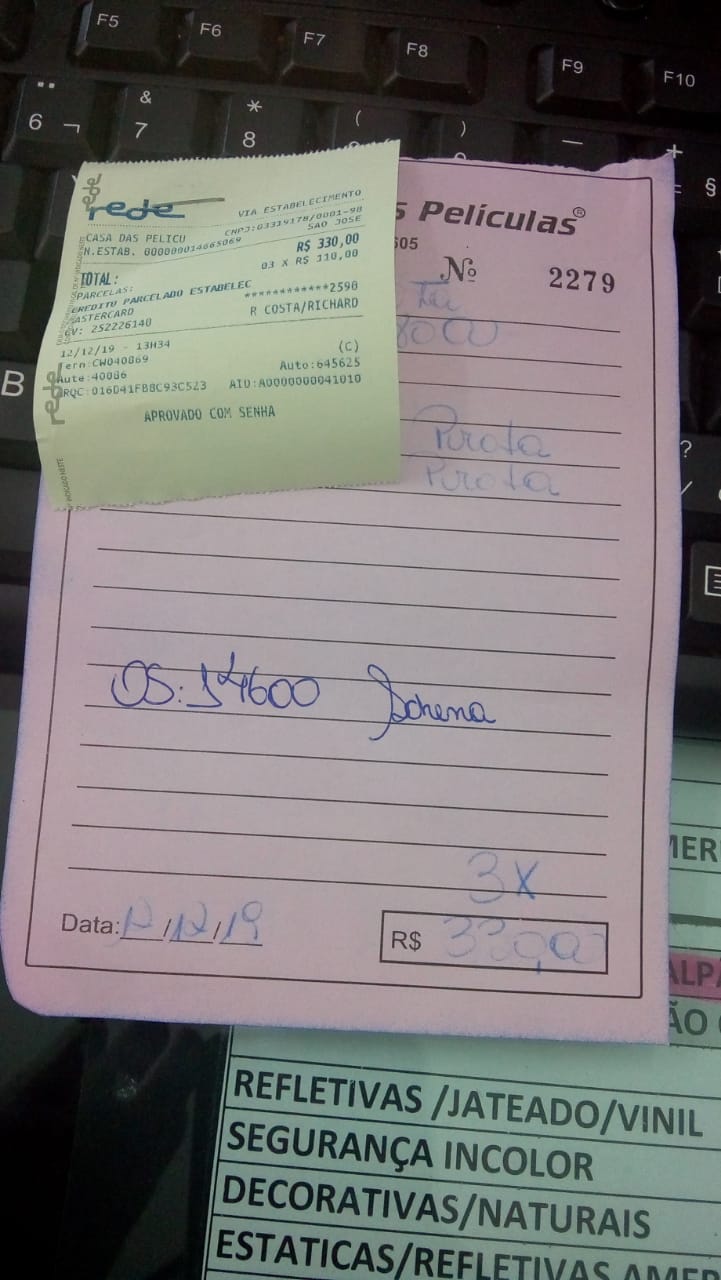 F5 F6 F7 F8 F9 F10
6 ¬ & 7 * 8 ( ) — + = §
B
?
rede
rede
VIA ESTABELECIMENTO
CASA DAS PELICU CNPJ:03319178/0001-98
N.ESTAB. 000000014665069 SAO JOSE
TOTAL: R$ 330,00
PARCELAS: 03 X R$ 110,00
CREDITO PARCELADO ESTABELEC
ASTERCARD ************2598
CV: 252226140 R COSTA/RICHARD
12/12/19 - 13H34
erm:CW040869 (C)
Aute:40086 Auto:645625
RQC:016D41FB8C93C523 AID:A0000000041010
APROVADO COM SENHA
rede
s Películas®
605
Nº 2279
Ta
Pirata
Pirata
OS: 14600
3X
Data: 12/12/19 R$ 330,00
MER
ALPA
ÃO
REFLETIVAS /JATEADO/VINIL
SEGURANÇA INCOLOR
DECORATIVAS/NATURAIS
ESTATICAS/REFLETIVAS AMER